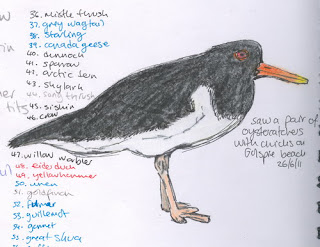 36. mistle thrush
37. grey wagtail
38. starling
39. canada geese
40. dunnock
41. sparrow
42. arctic tern
43. skylark
44. song thrush
tits
45. siskin
46. crow
saw a pair of
oystercatchers
with chicks on
Golspie beach
26/6/11
47. willow warbler
48. eider duck
49. yellowhammer
50. wren
51. goldfinch
52. fulmar
53. guillemot
54. gannet
55. great skua